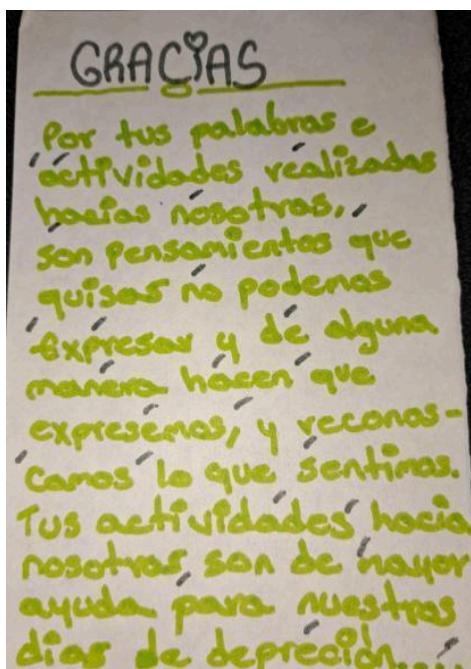 GRACIAS
Por tus palabras e
actividades realizadas
hacias nosotras,
son pensamientos que
quisas no podemos
expresar y de alguna
manera hacen que
expresemos, y reconos-
camos lo que sentimos.
Tus actividades hacia
nosotras son de mayor
ayuda para nuestros
días de depreción...